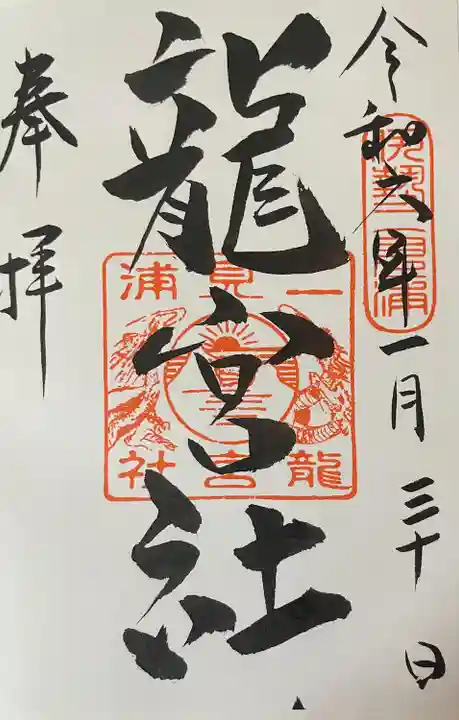 令和六年一月三十日
伊勢二見浦
龍宮社
二見浦
龍宮社
奉拝